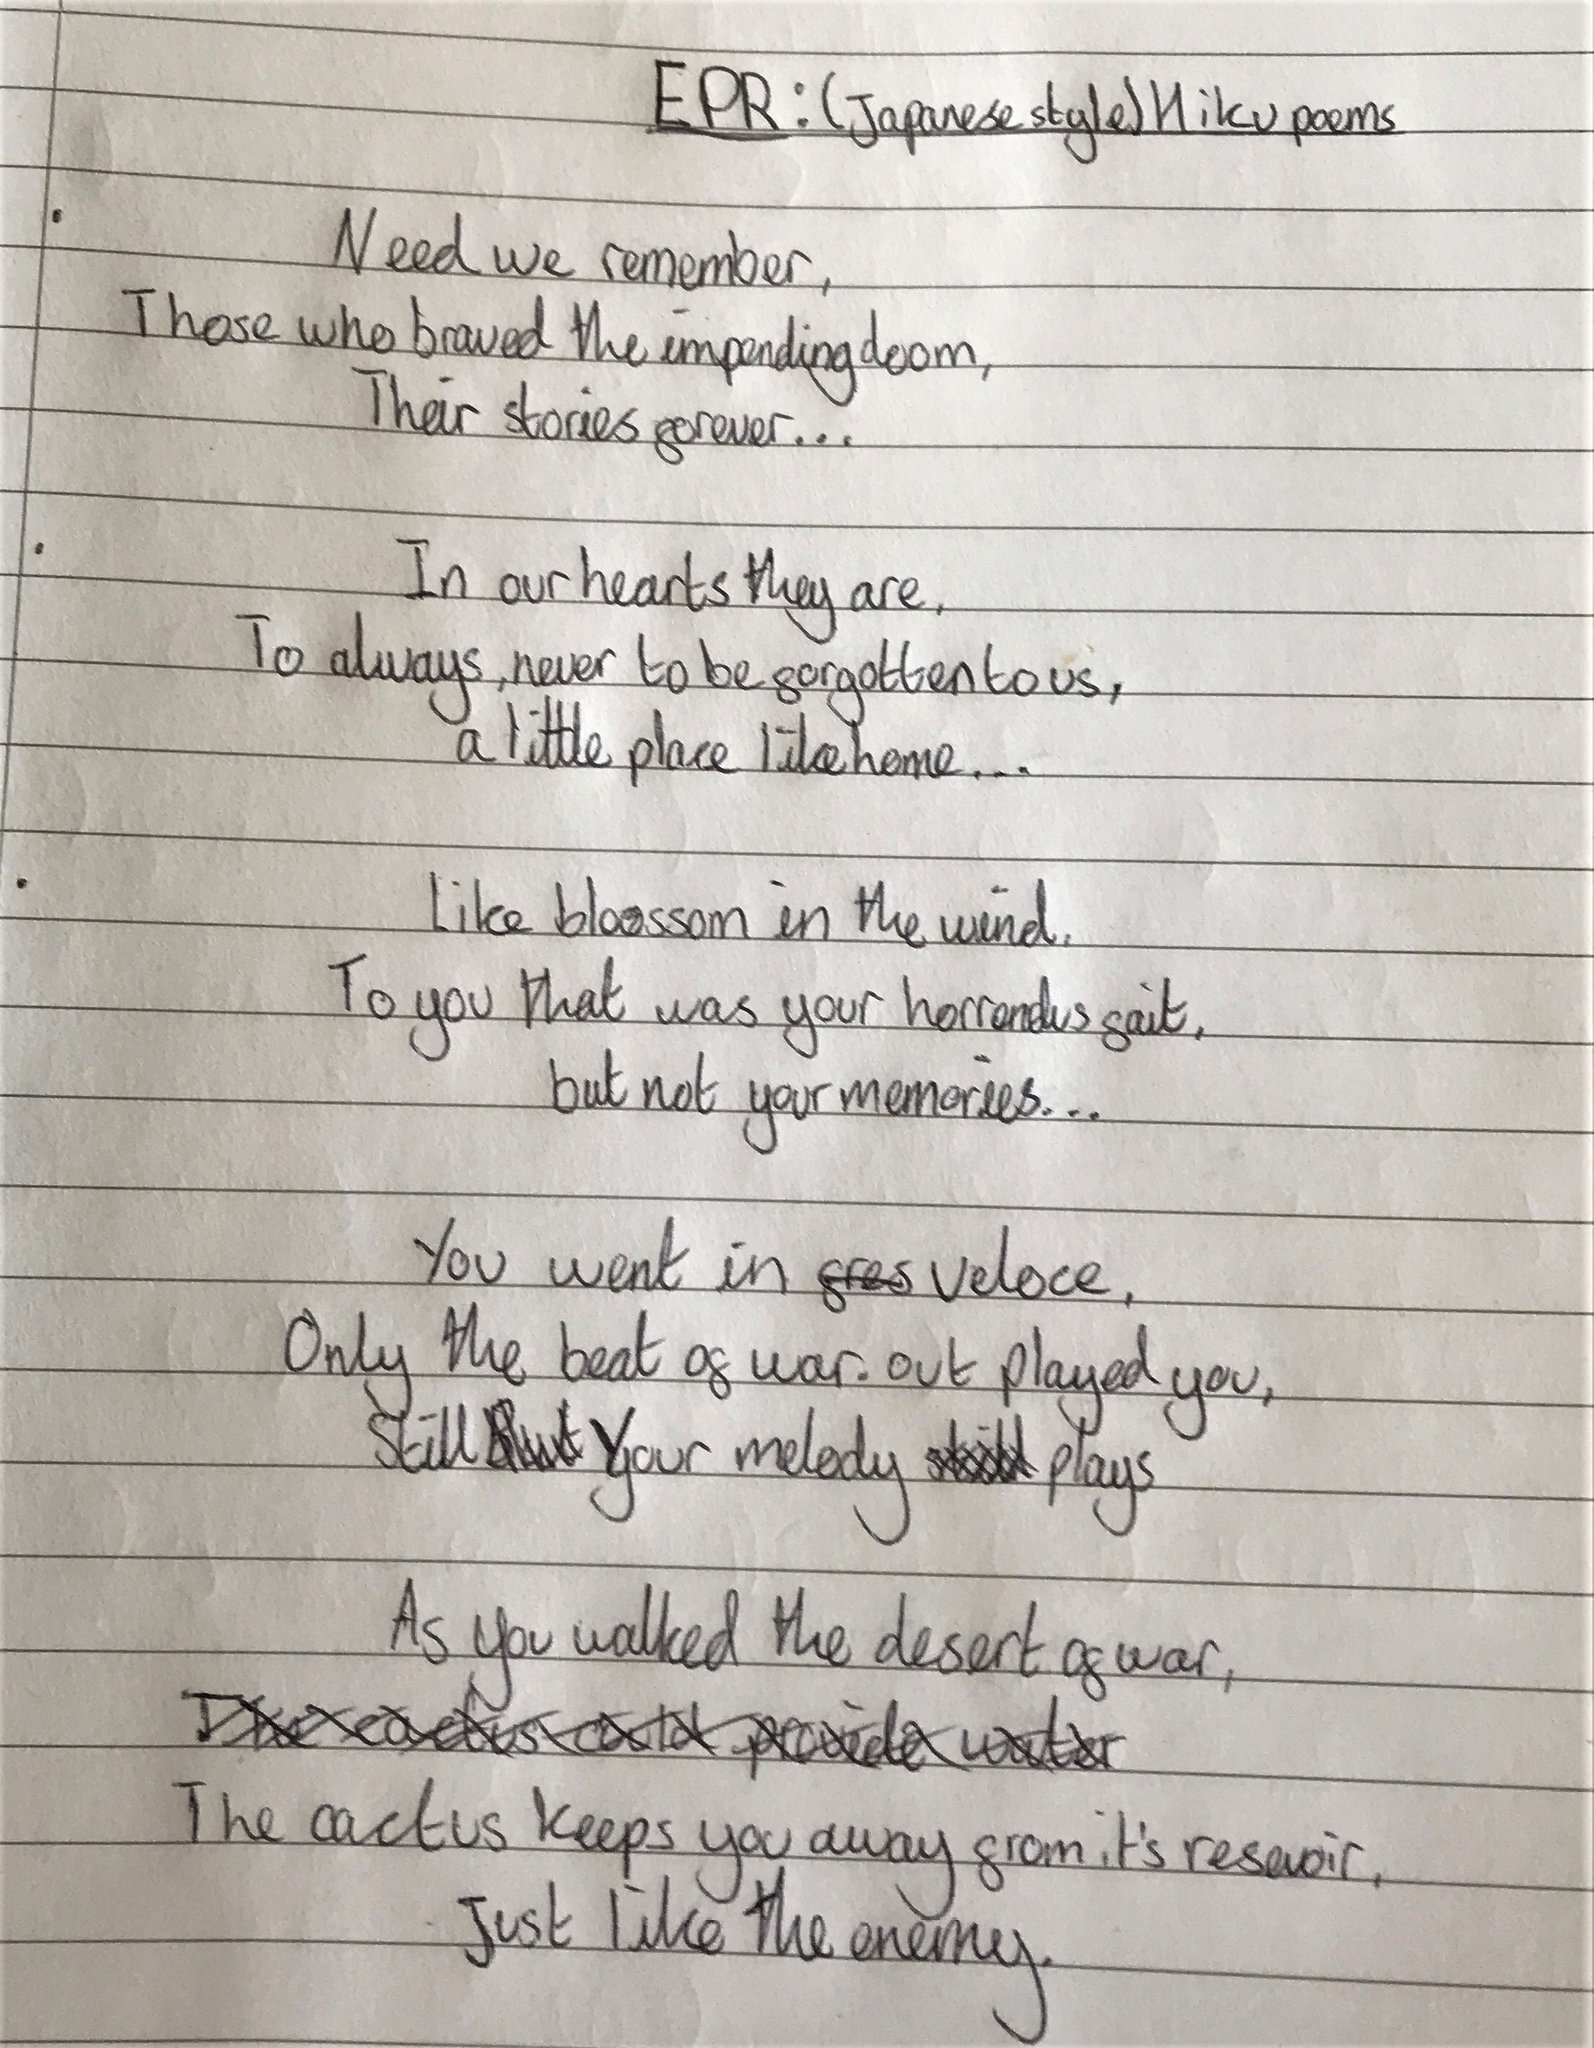 EPR: (Japanese style) Hiku poems
Need we remember,
Those who braved the impending doom,
Their stories forever...
In our hearts they are,
To always, never to be forgotten to us,
a little place like home...
Like blossom in the wind.
To you that was your horrendus fait,
but not your memories...
You went in fres veloce,
Only the beat of war. out played you,
Still But Your melody still plays
As you walked the desert of war,
The cactus could provide water
The cactus keeps you away from it's resevoir,
Just like the enemy.